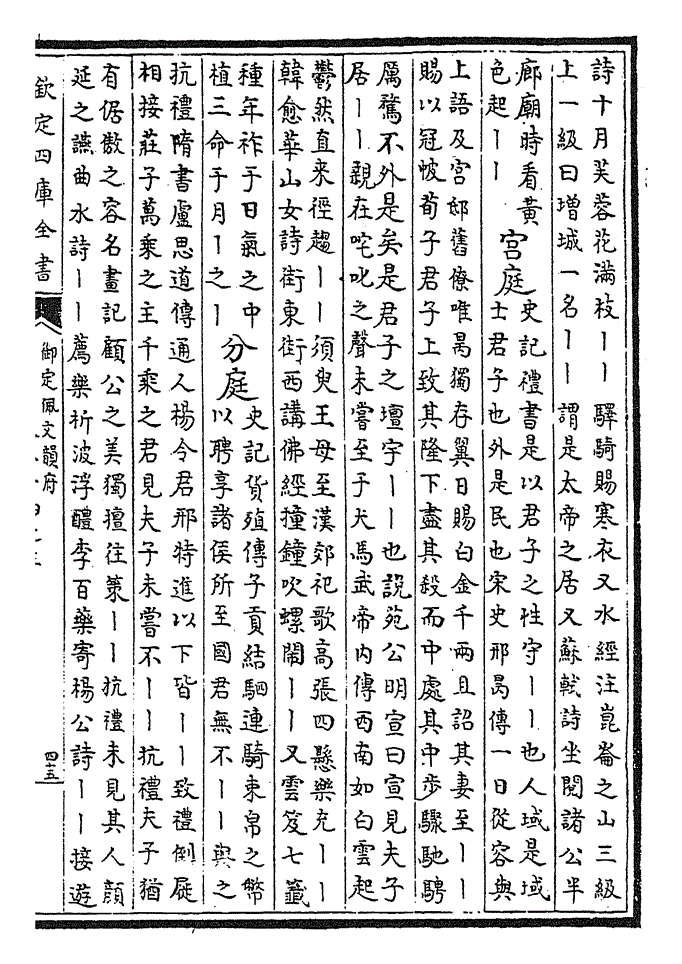 詩十月芙蓉花滿枝丨丨驛騎賜寒衣又水經注崑崙之山三級
上一級曰増城一名丨丨謂是太帝之居又蘇軾詩坐閲諸公半
廊廟時看黄
色起丨丨
宫庭
史記禮書是以君子之性守丨丨也人域是域
士君子也外是民也宋史邢昺傳一日從容與
上語及宫邸舊僚唯昺獨存翼日賜白金千兩且詔其妻至丨丨
賜以冠帔荀子君子上致其隆下盡其殺而中處其中步驟馳騁
厲騖不外是矣是君子之壇宇丨丨也説苑公明宣曰宣見夫子
居丨丨親在咤叱之聲未嘗至于犬馬武帝内傳西南如白雲起
鬱然直来徑趨丨丨須臾王母至漢郊祀歌高張四懸樂充丨丨
韓愈華山女詩街東街西講佛經撞鐘吹螺鬧丨丨又雲笈七籤
種年祚于日氣之中
植三命于月丨之丨
分庭
史記貨殖傳子貢結駟連騎束帛之幣
以聘享諸侯所至國君無不丨丨與之
抗禮隋書盧思道傳通人楊令君邢特進以下皆丨丨致禮倒屣
相接莊子萬乘之主千乘之君見夫子未嘗不丨丨抗禮夫子猶
有倨傲之容名畫記顧公之美獨擅往策丨丨抗禮未見其人顔
延之讌曲水詩丨丨薦樂析波浮醴李百藥寄楊公詩丨丨接遊
欽定四庫全書
御定佩文韻府
四十五